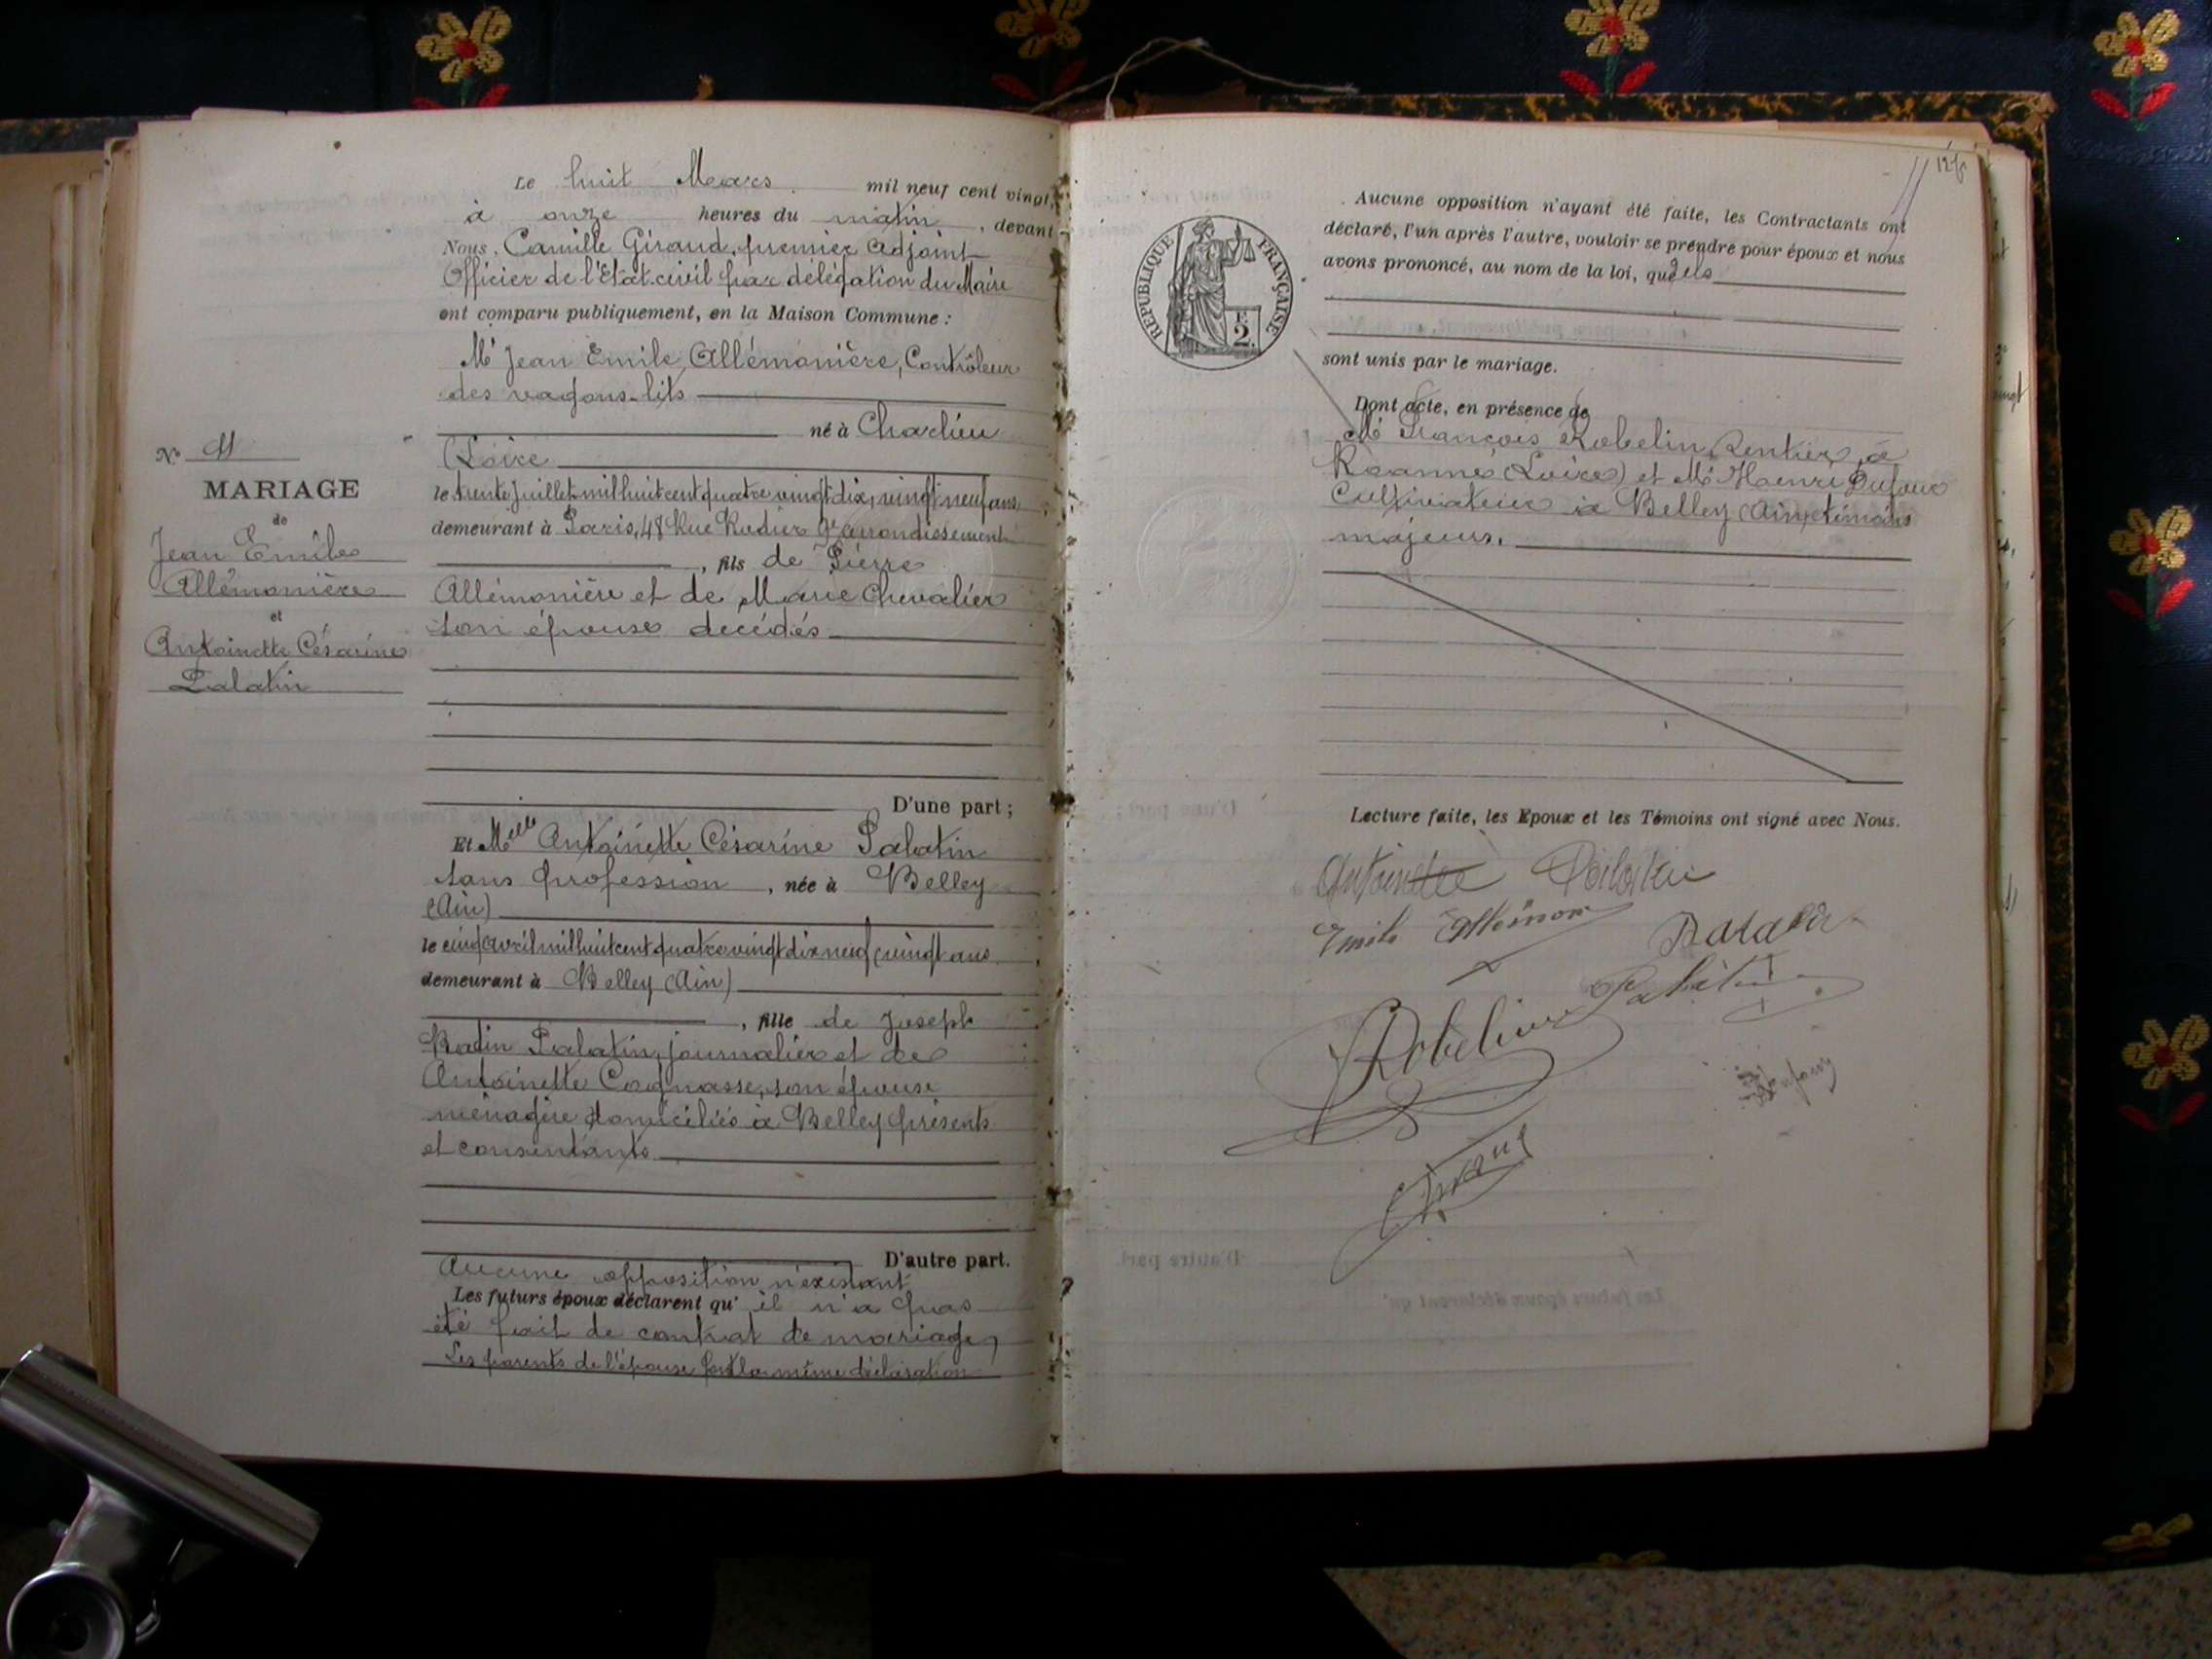 N° 11
MARIAGE
de
Jean Emile
Allémonière
et
Antoinette Césarine
Palatin
Le huit Mars mil neuf cent vingt,
à onze heures du matin, devant
Nous, Camille Giraud, premier adjoint
Officier de l'Etat-civil par délégation du Maire
ont comparu publiquement, en la Maison Commune :
Mr Jean Emile Allémonière, Contrôleur
des vagons-lits
né à Charlieu
(Loire
le trente juillet mil huit cent quatre vingt dix, vingt neuf ans,
demeurant à Paris, 48 Rue Rodier 9e arrondissement
, fils de Pierre
Allémonière et de Marie Chevalier
son épouse décédés
D'une part ;
Et Melle Antoinette Césarine Palatin
sans profession, née à Belley
(Ain)
le cinq avril mil huit cent quatre vingt dix neuf, vingt ans
demeurant à Belley (Ain)
, fille de Joseph
Palatin, journalier et de
Antoinette Cognasse, son épouse
ménagère domiciliés à Belley présents
et consentants
D'autre part.
Aucune opposition n'existant
Les futurs époux déclarent qu'il n'a pas
été fait de contrat de mariage,
Les parents de l'épouse font la même déclaration
REPUBLIQUE FRANÇAISE
F.
2.
Aucune opposition n'ayant été faite, les Contractants ont
déclaré, l'un après l'autre, vouloir se prendre pour époux et nous
avons prononcé, au nom de la loi, qu'ils
sont unis par le mariage.
Dont acte, en présence de
Mr François Robelin, Rentier, à
Roanne (Loire) et Mr Henri Dufour
Cultivateur à Belley (Ain) témoins
majeurs.
Lecture faite, les Epoux et les Témoins ont signé avec Nous.
Antoinette Palatin
Emile
Palatin
Robelin